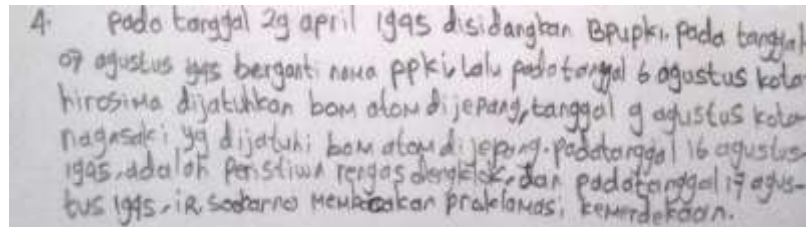 4. Pada tanggal 29 april 1945 disidangkan BPUPKI. Pada tanggal
07 agustus 1945 berganti nama PPKI, Lalu pada tanggal 6 agustus kota
hirosima dijatuhkan bom atom di jepang, tanggal 9 agustus kota
nagasaki yg dijatuhi bom atom di jepang. pada tanggal 16 agustus
1945, adalah Peristiwa rengas dengklok, dan pada tanggal 17 agus-
tus 1945, iR. Soekarno Membacakan proklamasi kemerdekaan.